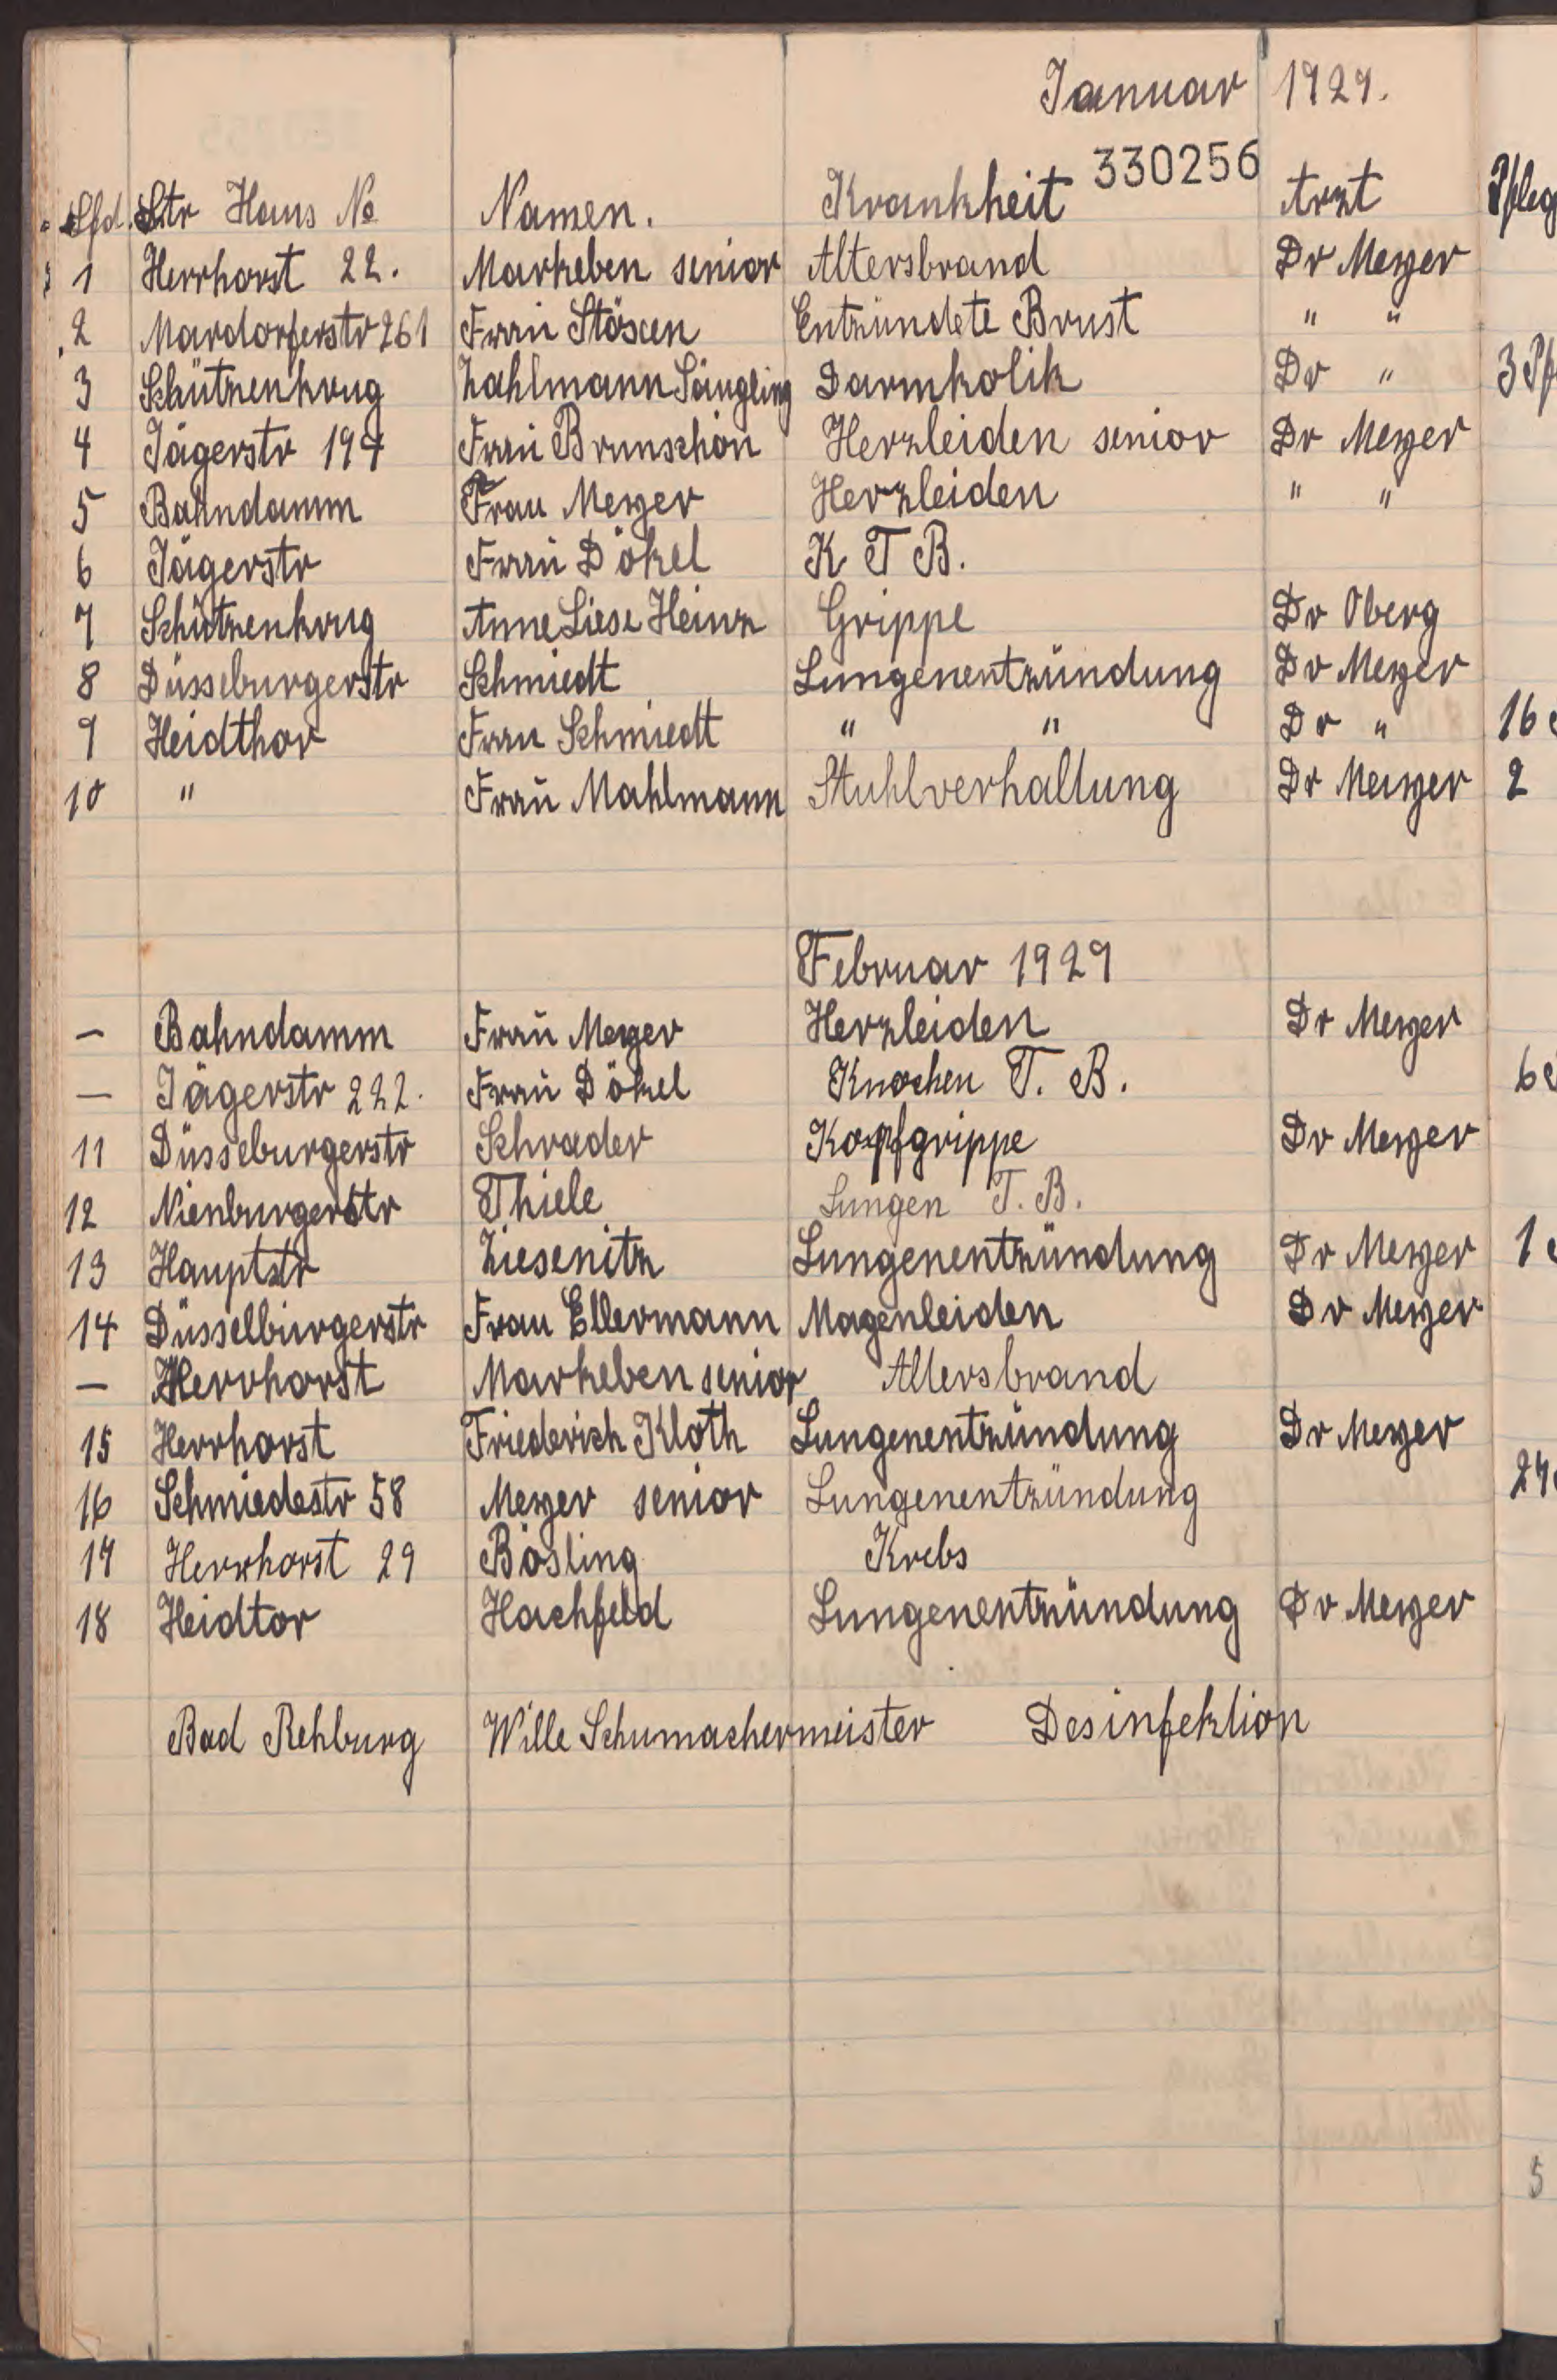 Januar 1929.
330256
Lfd. Str Haus No Namen. Krankheit Arzt Pfleg
1 Herrhorst 22. Markeben senior Altersbrand Dr Meyer
2 Mardorferstr 261 Frau Stöxen Entzündete Brust " "
3 Schützenkrug Zahlmann Säugling Darmkolik Dr " 3 Pf
4 Jägerstr 197 Frau Brunschön Herzleiden senior Dr Meyer
5 Bahndamm Frau Meyer Herzleiden " "
6 Jägerstr Frau Dökel K T B.
7 Schützenkrug Anne Liese Heinz Grippe Dr Oberg
8 Düsseburgerstr Schmiedt Lungenentzündung Dr Meyer
9 Heidthor Frau Schmiedt " " Dr " 16
10 " Frau Mahlmann Stuhlverhaltung Dr Meyer 2
Februar 1929
– Bahndamm Frau Meyer Herzleiden Dr Meyer
– Jägerstr 222. Frau Dökel Knochen T. B. 6
11 Düsseburgerstr Schrader Kopfgrippe Dr Meyer
12 Nienburgerstr Thiele Lungen T. B.
13 Hauptstr Ziesenitz Lungenentzündung Dr Meyer 1
14 Düsselburgerstr Frau Ellermann Magenleiden Dr Meyer
– Herrhorst Markeben senior Altersbrand
15 Herrhorst Friederich Kloth Lungenentzündung Dr Meyer
16 Schmiedestr 58 Meyer senior Lungenentzündung 27
17 Herrhorst 29 Bösling Krebs
18 Heidtor Hachfeld Lungenentzündung Dr Meyer
Bad Rehburg Wille Schumachermeister Desinfektion
5